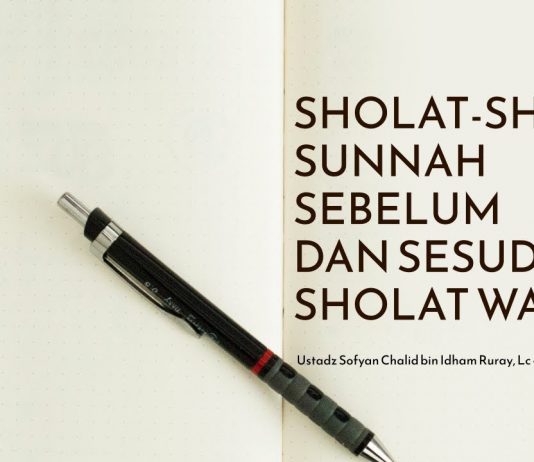 SHOLAT-SH
SUNNAH
SEBELUM
DAN SESUD
SHOLAT WA
Ustadz Sofyan Chalid bin Idham Ruray, Lc